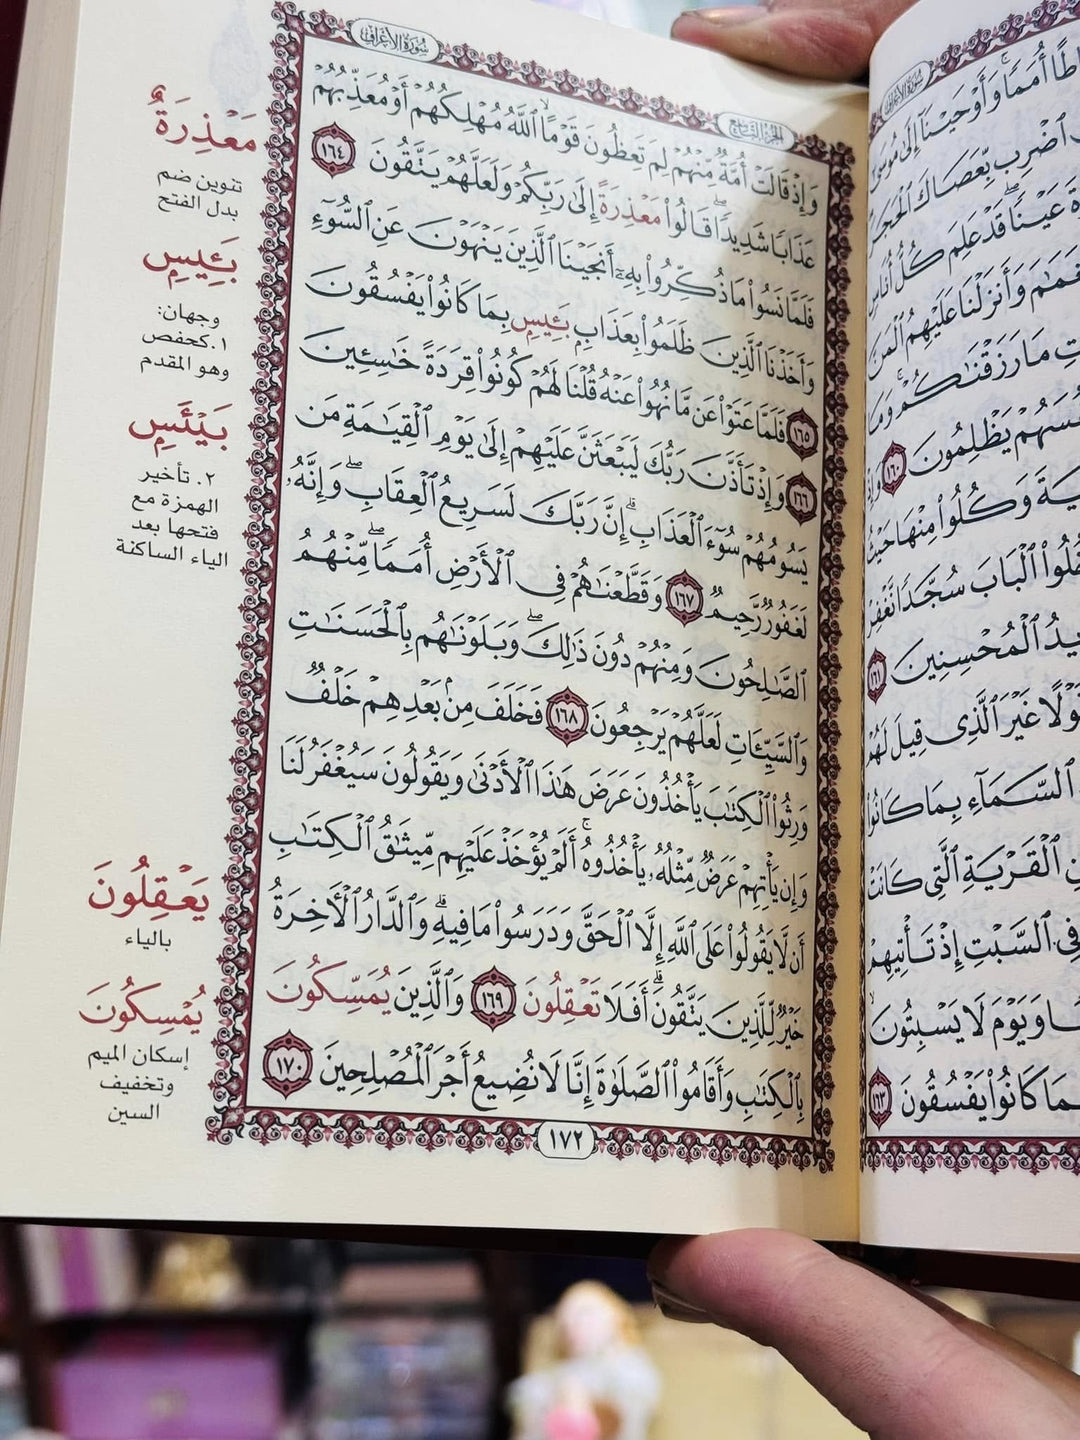 سُورَةُ الأَعْرَاف
الجُزْءُ التَّاسِع
وَإِذْ قَالَتْ أُمَّةٌ مِّنْهُمْ لِمَ تَعِظُونَ قَوْمًا ۙ ٱللَّهُ مُهْلِكُهُمْ أَوْ مُعَذِّبُهُمْ
عَذَابًا شَدِيدًا ۖ قَالُوا۟ مَعْذِرَةً إِلَىٰ رَبِّكُمْ وَلَعَلَّهُمْ يَتَّقُونَ ١٦٤
فَلَمَّا نَسُوا۟ مَا ذُكِّرُوا۟ بِهِۦٓ أَنجَيْنَا ٱلَّذِينَ يَنْهَوْنَ عَنِ ٱلسُّوٓءِ
وَأَخَذْنَا ٱلَّذِينَ ظَلَمُوا۟ بِعَذَابٍۭ بَـِٔيسٍۭ بِمَا كَانُوا۟ يَفْسُقُونَ
١٦٥ فَلَمَّا عَتَوْا۟ عَن مَّا نُهُوا۟ عَنْهُ قُلْنَا لَهُمْ كُونُوا۟ قِرَدَةً خَـٰسِـِٔينَ
١٦٦ وَإِذْ تَأَذَّنَ رَبُّكَ لَيَبْعَثَنَّ عَلَيْهِمْ إِلَىٰ يَوْمِ ٱلْقِيَـٰمَةِ مَن
يَسُومُهُمْ سُوٓءَ ٱلْعَذَابِ ۗ إِنَّ رَبَّكَ لَسَرِيعُ ٱلْعِقَابِ ۖ وَإِنَّهُۥ
لَغَفُورٌ رَّحِيمٌ ١٦٧ وَقَطَّعْنَـٰهُمْ فِى ٱلْأَرْضِ أُمَمًا ۖ مِّنْهُمُ
ٱلصَّـٰلِحُونَ وَمِنْهُمْ دُونَ ذَٰلِكَ ۖ وَبَلَوْنَـٰهُم بِٱلْحَسَنَـٰتِ
وَٱلسَّيِّـَٔاتِ لَعَلَّهُمْ يَرْجِعُونَ ١٦٨ فَخَلَفَ مِنۢ بَعْدِهِمْ خَلْفٌ
وَرِثُوا۟ ٱلْكِتَـٰبَ يَأْخُذُونَ عَرَضَ هَـٰذَا ٱلْأَدْنَىٰ وَيَقُولُونَ سَيُغْفَرُ لَنَا
وَإِن يَأْتِهِمْ عَرَضٌ مِّثْلُهُۥ يَأْخُذُوهُ ۚ أَلَمْ يُؤْخَذْ عَلَيْهِم مِّيثَـٰقُ ٱلْكِتَـٰبِ
أَن لَّا يَقُولُوا۟ عَلَى ٱللَّهِ إِلَّا ٱلْحَقَّ وَدَرَسُوا۟ مَا فِيهِ ۗ وَٱلدَّارُ ٱلْـَٔاخِرَةُ
خَيْرٌ لِّلَّذِينَ يَتَّقُونَ ۗ أَفَلَا تَعْقِلُونَ ١٦٩ وَٱلَّذِينَ يُمَسِّكُونَ
بِٱلْكِتَـٰبِ وَأَقَامُوا۟ ٱلصَّلَوٰةَ إِنَّا لَا نُضِيعُ أَجْرَ ٱلْمُصْلِحِينَ ١٧٠
١٧٢
مَعْذِرَةٌ
تنوين ضم
بدل الفتح
بَـِٔيسٍ
وجهان:
١.كحفص
وهو المقدم
بَيْـَٔسٍ
٢. تأخير
الهمزة مع
فتحها بعد
الياء الساكنة
يَعْقِلُونَ
بالياء
يُمْسِكُونَ
إسكان الميم
وتخفيف
السين
سُورَةُ الأَعْرَاف
أُمَمًا ۚ وَأَوْحَيْنَآ إِلَىٰ مُوسَىٰٓ
ٱضْرِب بِّعَصَاكَ ٱلْحَجَرَ
عَيْنًا ۖ قَدْ عَلِمَ كُلُّ أُنَاسٍ
وَأَنزَلْنَا عَلَيْهِمُ ٱلْمَنَّ
مَا رَزَقْنَـٰكُمْ ۚ وَمَا
يَظْلِمُونَ ١٦٠ وَإِذْ
وَكُلُوا۟ مِنْهَا حَيْثُ
ٱلْبَابَ سُجَّدًا نَّغْفِرْ
ٱلْمُحْسِنِينَ ١٦١
غَيْرَ ٱلَّذِى قِيلَ لَهُمْ
ٱلسَّمَآءِ بِمَا كَانُوا۟
ٱلْقَرْيَةِ ٱلَّتِى كَانَتْ
فِى ٱلسَّبْتِ إِذْ تَأْتِيهِمْ
وَيَوْمَ لَا يَسْبِتُونَ ۙ
كَانُوا۟ يَفْسُقُونَ ١٦٣